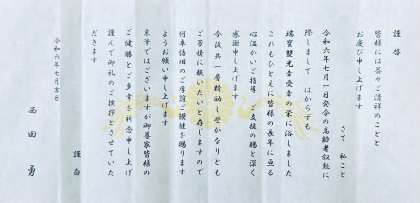 謹啓
皆様には益々ご清祥のことと
お慶び申し上げます
さて 私こと
令和六年七月一日発令の高齢者叙勲に
際しまして はからずも
瑞宝双光章受章の栄に浴しました
これもひとえに皆様の長年に亘る
心温かいご指導 ご支援の賜と深く
感謝申し上げます
今後共一層精励し些かなりとも
ご芳情に報いたいと存じますので
何卒倍旧のご厚誼ご鞭撻を賜ります
ようお願い申し上げます
末筆ではございますが御尊家皆様の
ご健勝とご多幸を祈念申し上げ
謹んで御礼のご挨拶とさせていた
だきます
謹白
令和六年七月吉日
西田 勇